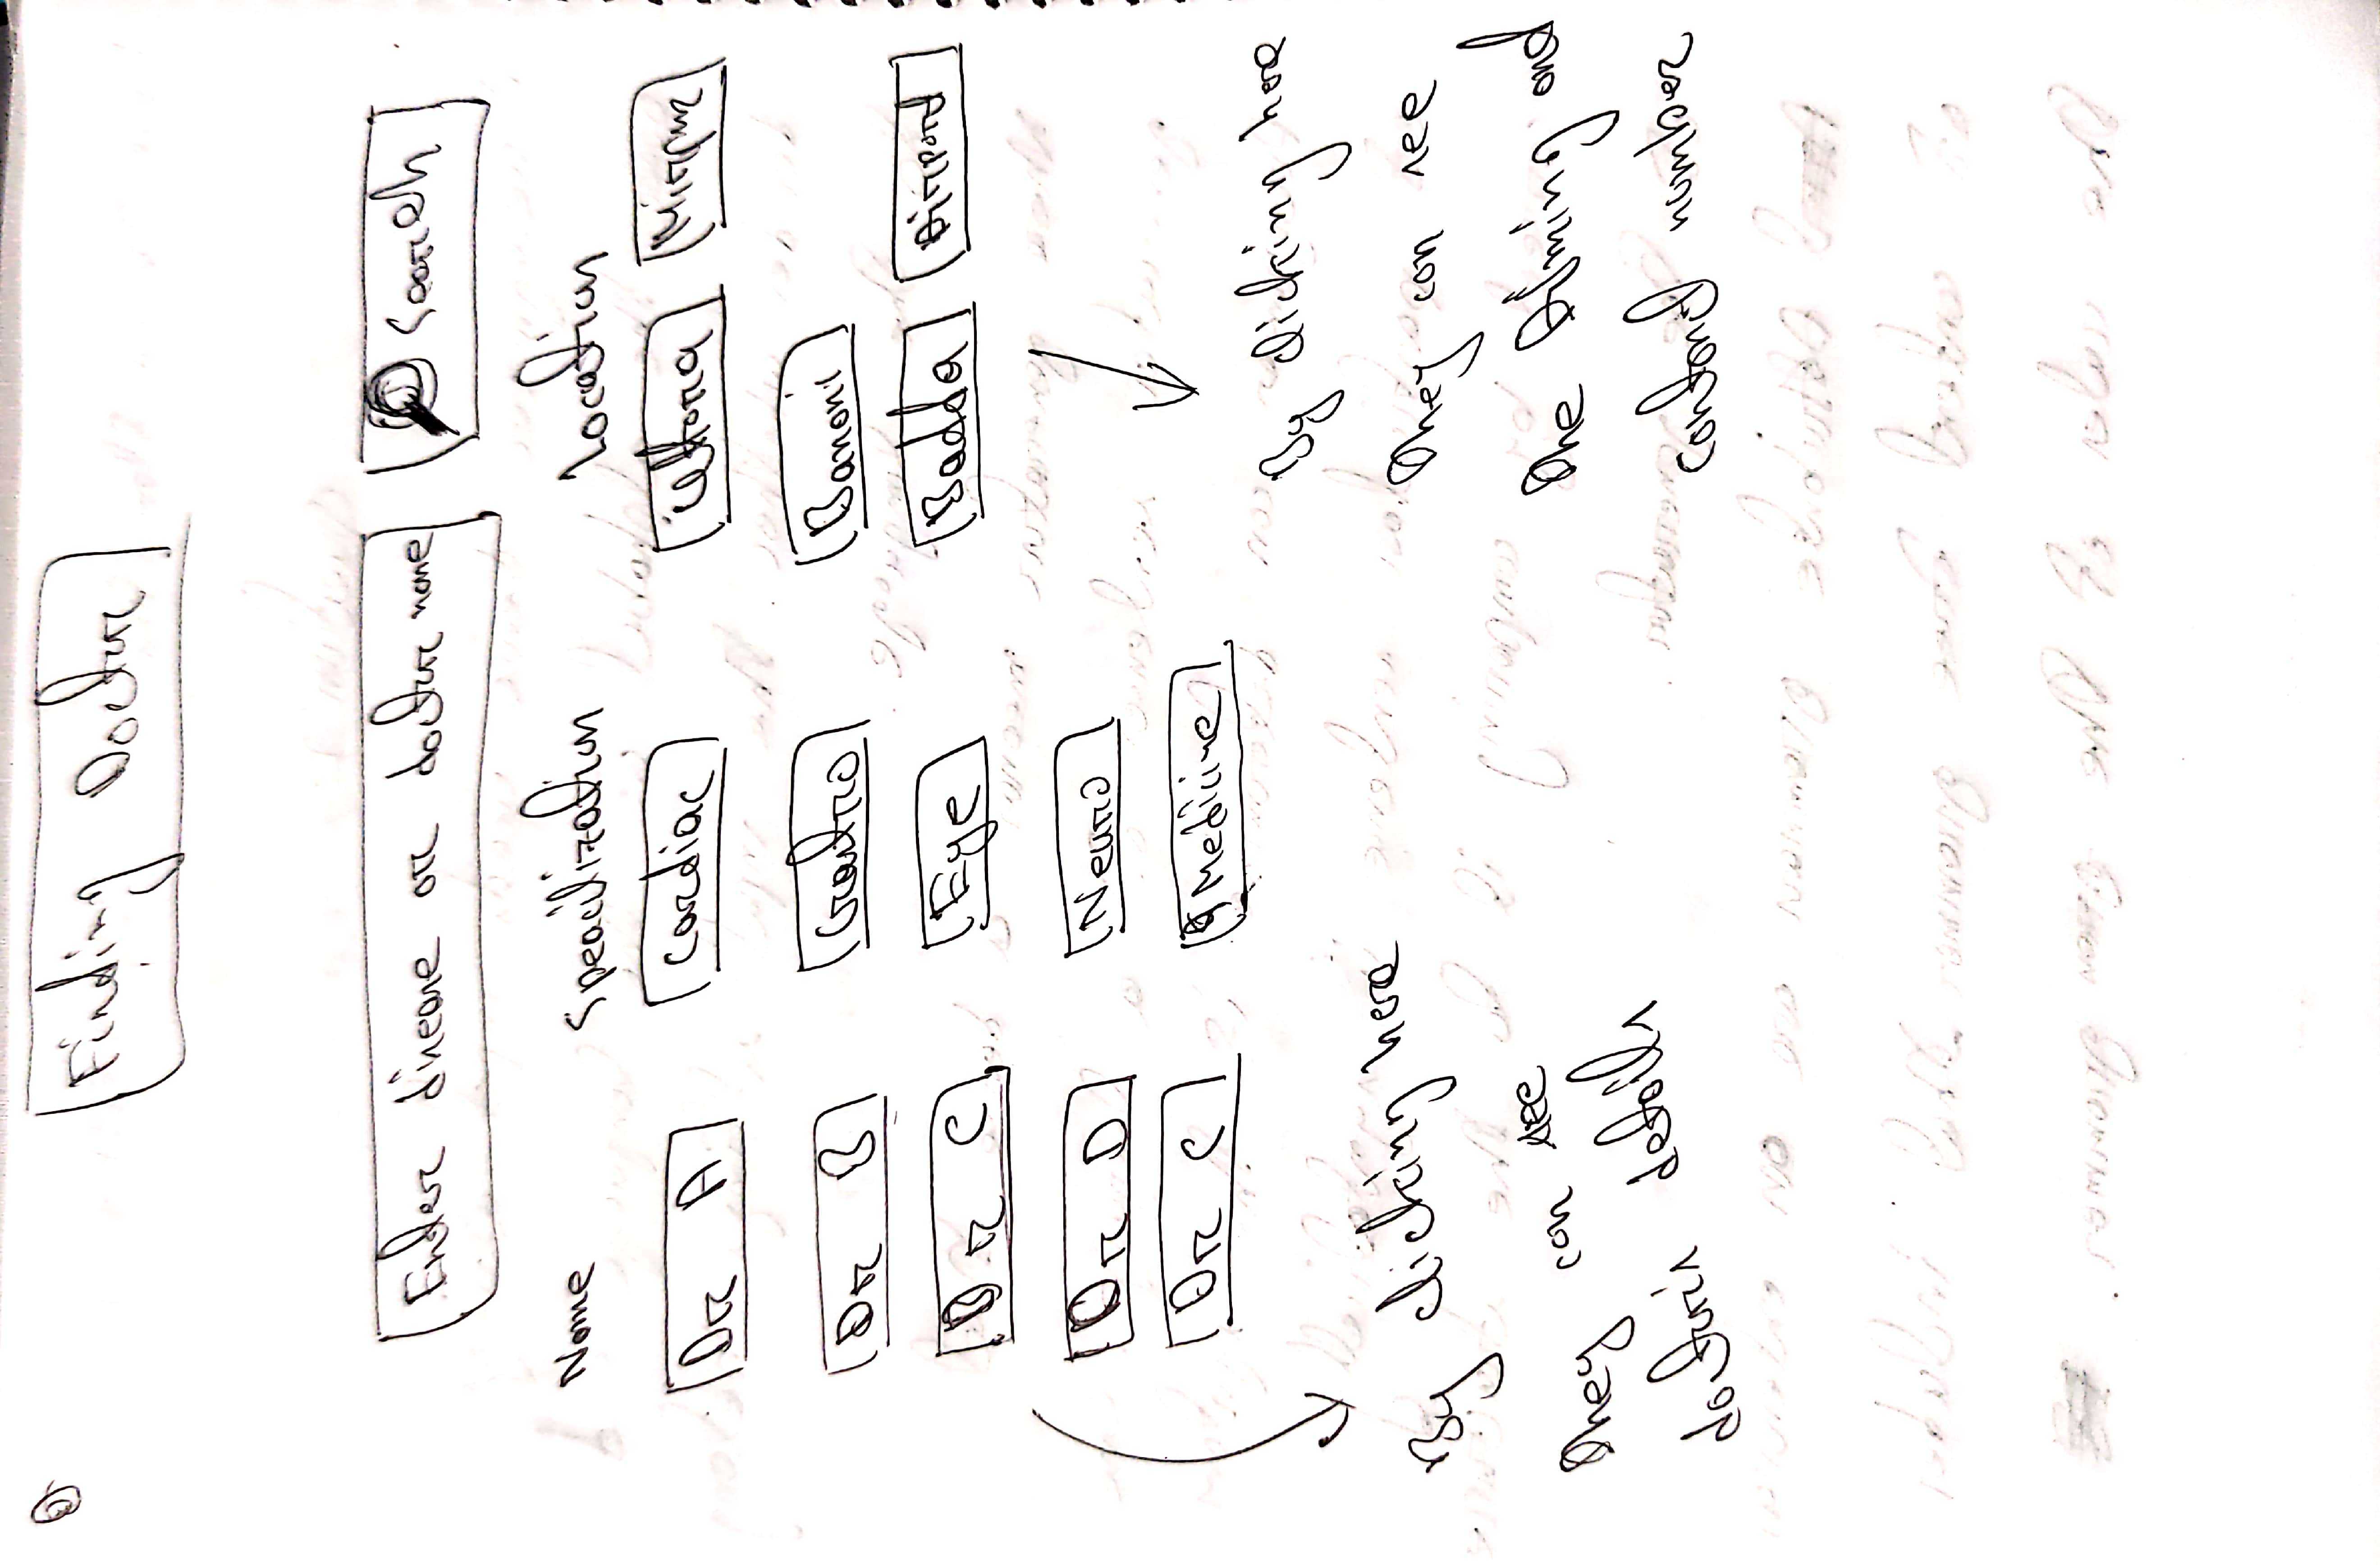 Finding Doctor
Enter disease or doctor name Search
Name Speacilization Location
Dr A Cardiac Uttora Mirpur
Dr B Gastro Banani
Dr C Eye Badda Airport
Dr D Neuro
Dr C Medicine
By clicking here
they can see
doctor's details
By clicking here
they can see
the timing and
contact number